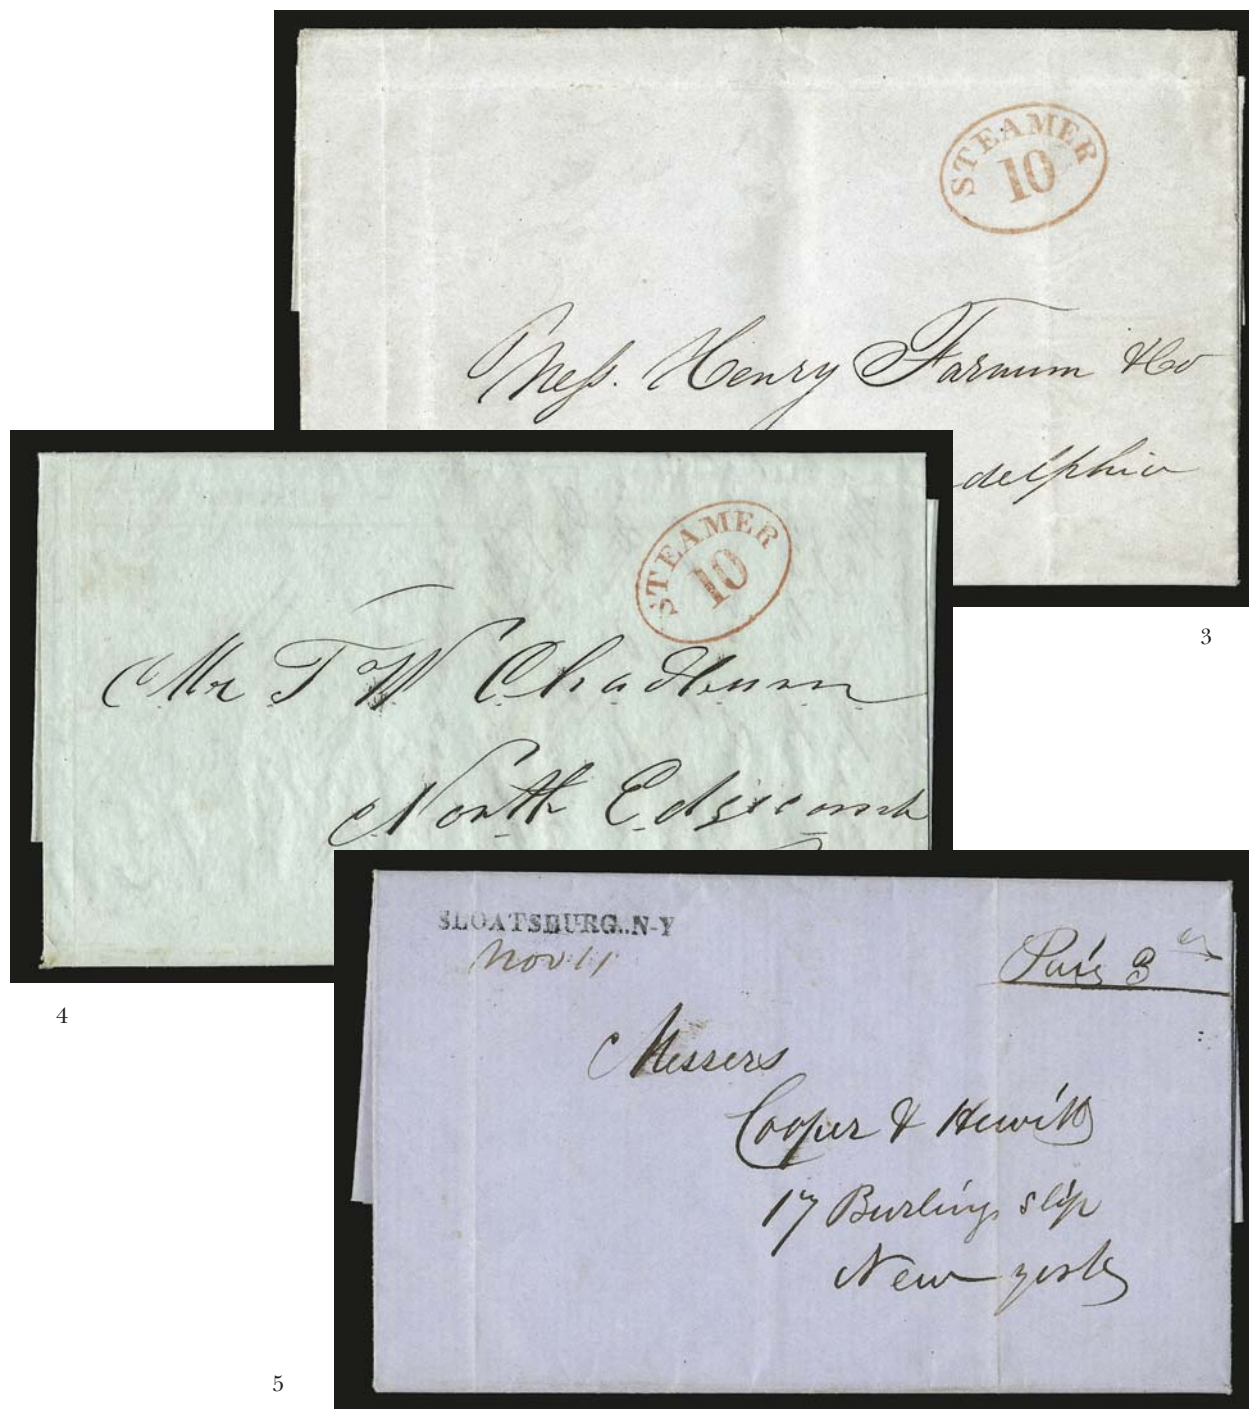 STEAMER
10
Mess. Henry Farnum & Co
delphia
3
STEAMER
10
Mr T W Chadburn
North Edgecomb
4
SLOATSBURG..N-Y
Nov 11
Paid 3 cts
Messers
Cooper & Hewitt
17 Burling slip
New york
5